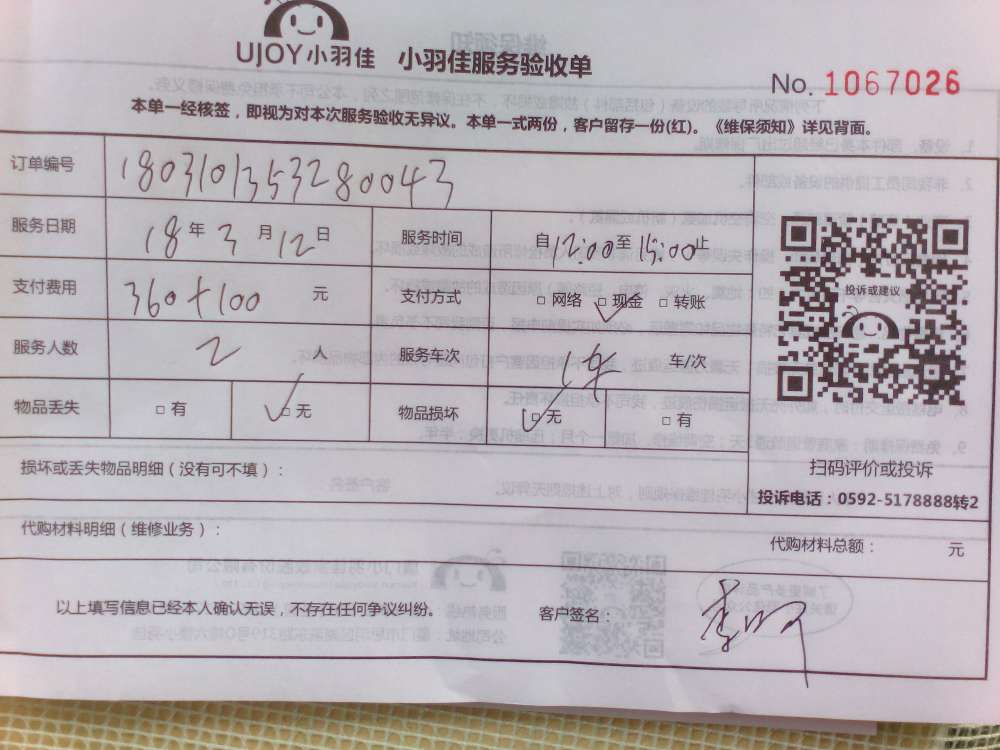 UJOY小羽佳 小羽佳服务验收单
No. 1067026
本单一经核签，即视为对本次服务验收无异议。本单一式两份，客户留存一份(红)。《维保须知》详见背面。
订单编号 1803101353280043
服务日期 18年3月12日 服务时间 自12:00至15:00止
支付费用 360+100 元 支付方式 □网络 □现金 □转账
服务人数 2 人 服务车次 1车 车/次
物品丢失 □有 □无 物品损坏 □无 □有
投诉或建议
扫码评价或投诉
投诉电话：0592-5178888转2
损坏或丢失物品明细（没有可不填）：
代购材料明细（维修业务）： 代购材料总额： 元
以上填写信息已经本人确认无误，不存在任何争议纠纷。 客户签名：